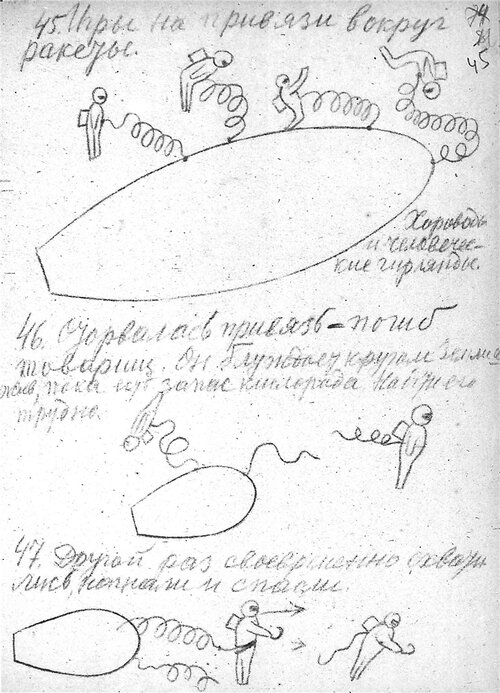 45. Игры на привязи вокруг
ракеты.
74
21
45
Хороводы
и человечес-
кие гирлянды.
46. Оторвалась привязь – погиб
товарищ. Он блуждает кругом Земли
жив, пока ещё запас кислорода. Найти его
трудно.
47. Другой раз своевременно схвати-
лись, погнали и спасли.